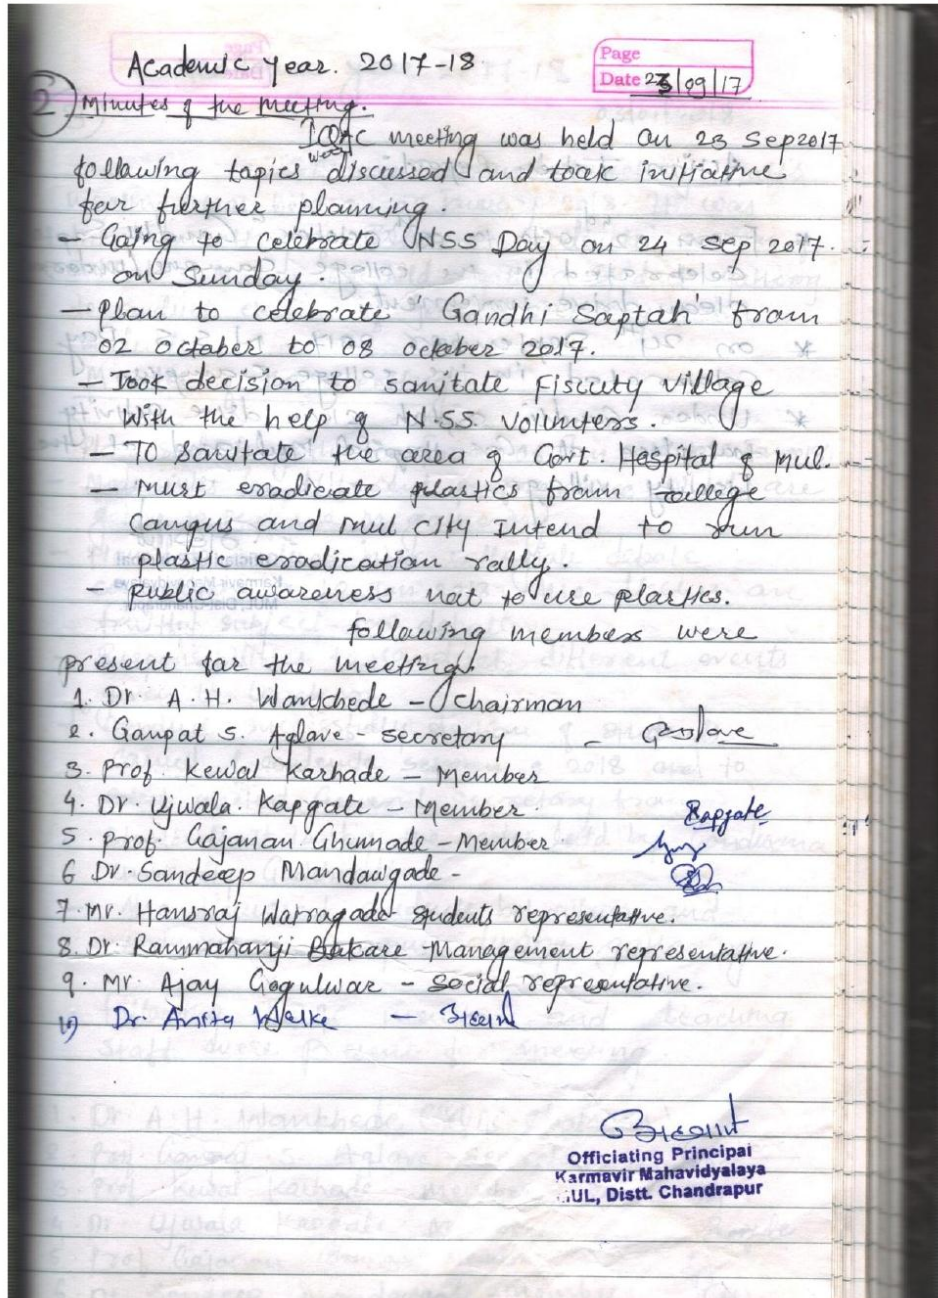 Academic Year. 2017-18
Page
Date 23/09/17
2) Minutes of the Meeting.
IQAC meeting was held on 23 Sep 2017
following topics were discussed and took initiative
for further planning.
- Going to celebrate NSS Day on 24 Sep 2017.
on Sunday.
- Plan to celebrate 'Gandhi Saptah' from
02 October to 08 october 2017.
- Took decision to sanitate Fiscuty village
with the help of N.S.S. volunters.
- To sanitate the area of Govt. Hospital of Mul.
- Must eradicate plastics from college
campus and mul city Intend to run
plastic eradication rally.
- Public awareness not to use plastics.
following members were
present for the meeting.
1. Dr. A. H. Wankhede - Chairman
2. Ganpat S. Aglave - secretary -
3. Prof. Kewal Karhade - Member
4. Dr. Ujwala Kapgate - Member. Kapgate
5. Prof. Gajanan Ghumade - Member
6 Dr. Sandeep Mandawgade -
7. Mr. Hansraj Watragade students representative.
8. Dr. Rammahanji Bakare - Management representative.
9. Mr. Ajay Gogulwar - Social representative.
10) Dr. Anita Walke -
Officiating Principal
Karmavir Mahavidyalaya
MUL, Distt. Chandrapur